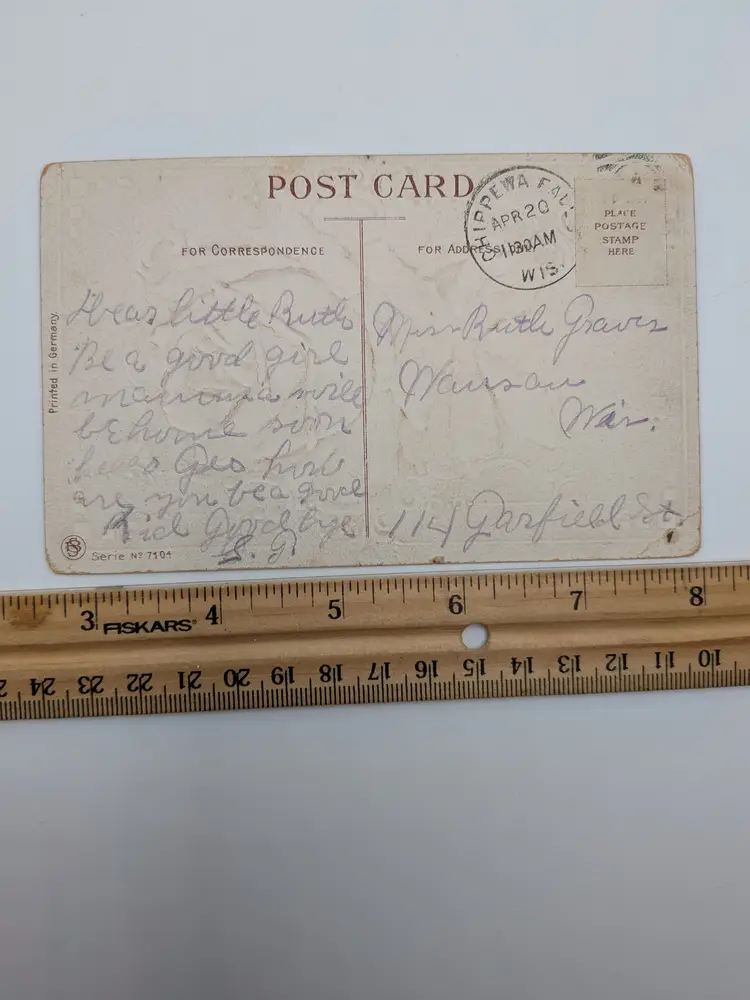 POST CARD
CHIPPEWA FAL
APR 20
1130AM
WIS.
PLACE
POSTAGE
STAMP
HERE
FOR CORRESPONDENCE
FOR ADDRESS
Printed in Germany
Dear little Ruth
Be a good girl
mamma will
be home soon
Geo
are you be a good
Kid Good bye
S. G.
Serie Nº 7104
Miss Ruth Graves
Wausau
Wis.
114 Garfield St.
3 4 5 6 7 8
FISKARS
24 23 22 21 20 19 18 17 16 15 14 13 12 11 10